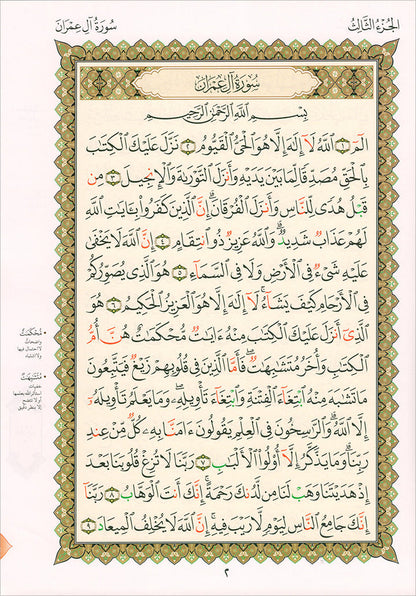 الجُزْءُ الثَّالِثُ
سُورَةُ آلِ عِمْرَانَ
سُورَةُ آلِ عِمْرَانَ
بِسْمِ ٱللَّهِ ٱلرَّحْمَٰنِ ٱلرَّحِيمِ
الٓمٓ ١ ٱللَّهُ لَآ إِلَٰهَ إِلَّا هُوَ ٱلْحَىُّ ٱلْقَيُّومُ ٢ نَزَّلَ عَلَيْكَ ٱلْكِتَٰبَ
بِٱلْحَقِّ مُصَدِّقًا لِّمَا بَيْنَ يَدَيْهِ وَأَنزَلَ ٱلتَّوْرَىٰةَ وَٱلْإِنجِيلَ ٣ مِن
قَبْلُ هُدًى لِّلنَّاسِ وَأَنزَلَ ٱلْفُرْقَانَ ۗ إِنَّ ٱلَّذِينَ كَفَرُوا۟ بِـَٔايَٰتِ ٱللَّهِ
لَهُمْ عَذَابٌ شَدِيدٌ ۗ وَٱللَّهُ عَزِيزٌ ذُو ٱنتِقَامٍ ٤ إِنَّ ٱللَّهَ لَا يَخْفَىٰ
عَلَيْهِ شَىْءٌ فِى ٱلْأَرْضِ وَلَا فِى ٱلسَّمَآءِ ٥ هُوَ ٱلَّذِى يُصَوِّرُكُمْ
فِى ٱلْأَرْحَامِ كَيْفَ يَشَآءُ ۚ لَآ إِلَٰهَ إِلَّا هُوَ ٱلْعَزِيزُ ٱلْحَكِيمُ ٦ هُوَ
ٱلَّذِىٓ أَنزَلَ عَلَيْكَ ٱلْكِتَٰبَ مِنْهُ ءَايَٰتٌ مُّحْكَمَٰتٌ هُنَّ أُمُّ
ٱلْكِتَٰبِ وَأُخَرُ مُتَشَٰبِهَٰتٌ ۖ فَأَمَّا ٱلَّذِينَ فِى قُلُوبِهِمْ زَيْغٌ فَيَتَّبِعُونَ
مَا تَشَٰبَهَ مِنْهُ ٱبْتِغَآءَ ٱلْفِتْنَةِ وَٱبْتِغَآءَ تَأْوِيلِهِۦ ۗ وَمَا يَعْلَمُ تَأْوِيلَهُۥٓ
إِلَّا ٱللَّهُ ۗ وَٱلرَّٰسِخُونَ فِى ٱلْعِلْمِ يَقُولُونَ ءَامَنَّا بِهِۦ كُلٌّ مِّنْ عِندِ
رَبِّنَا ۗ وَمَا يَذَّكَّرُ إِلَّآ أُو۟لُوا۟ ٱلْأَلْبَٰبِ ٧ رَبَّنَا لَا تُزِغْ قُلُوبَنَا بَعْدَ
إِذْ هَدَيْتَنَا وَهَبْ لَنَا مِن لَّدُنكَ رَحْمَةً ۚ إِنَّكَ أَنتَ ٱلْوَهَّابُ ٨ رَبَّنَآ
إِنَّكَ جَامِعُ ٱلنَّاسِ لِيَوْمٍ لَّا رَيْبَ فِيهِ ۚ إِنَّ ٱللَّهَ لَا يُخْلِفُ ٱلْمِيعَادَ ٩
• مُحْكَمَٰتٌ
واضحات
لا احتمال فيها
ولا اشتباه
• مُتَشَٰبِهَٰتٌ
خفيات
استأثر الله بعلمها
أو لا تتضح
إلا بنظر دقيق
٢